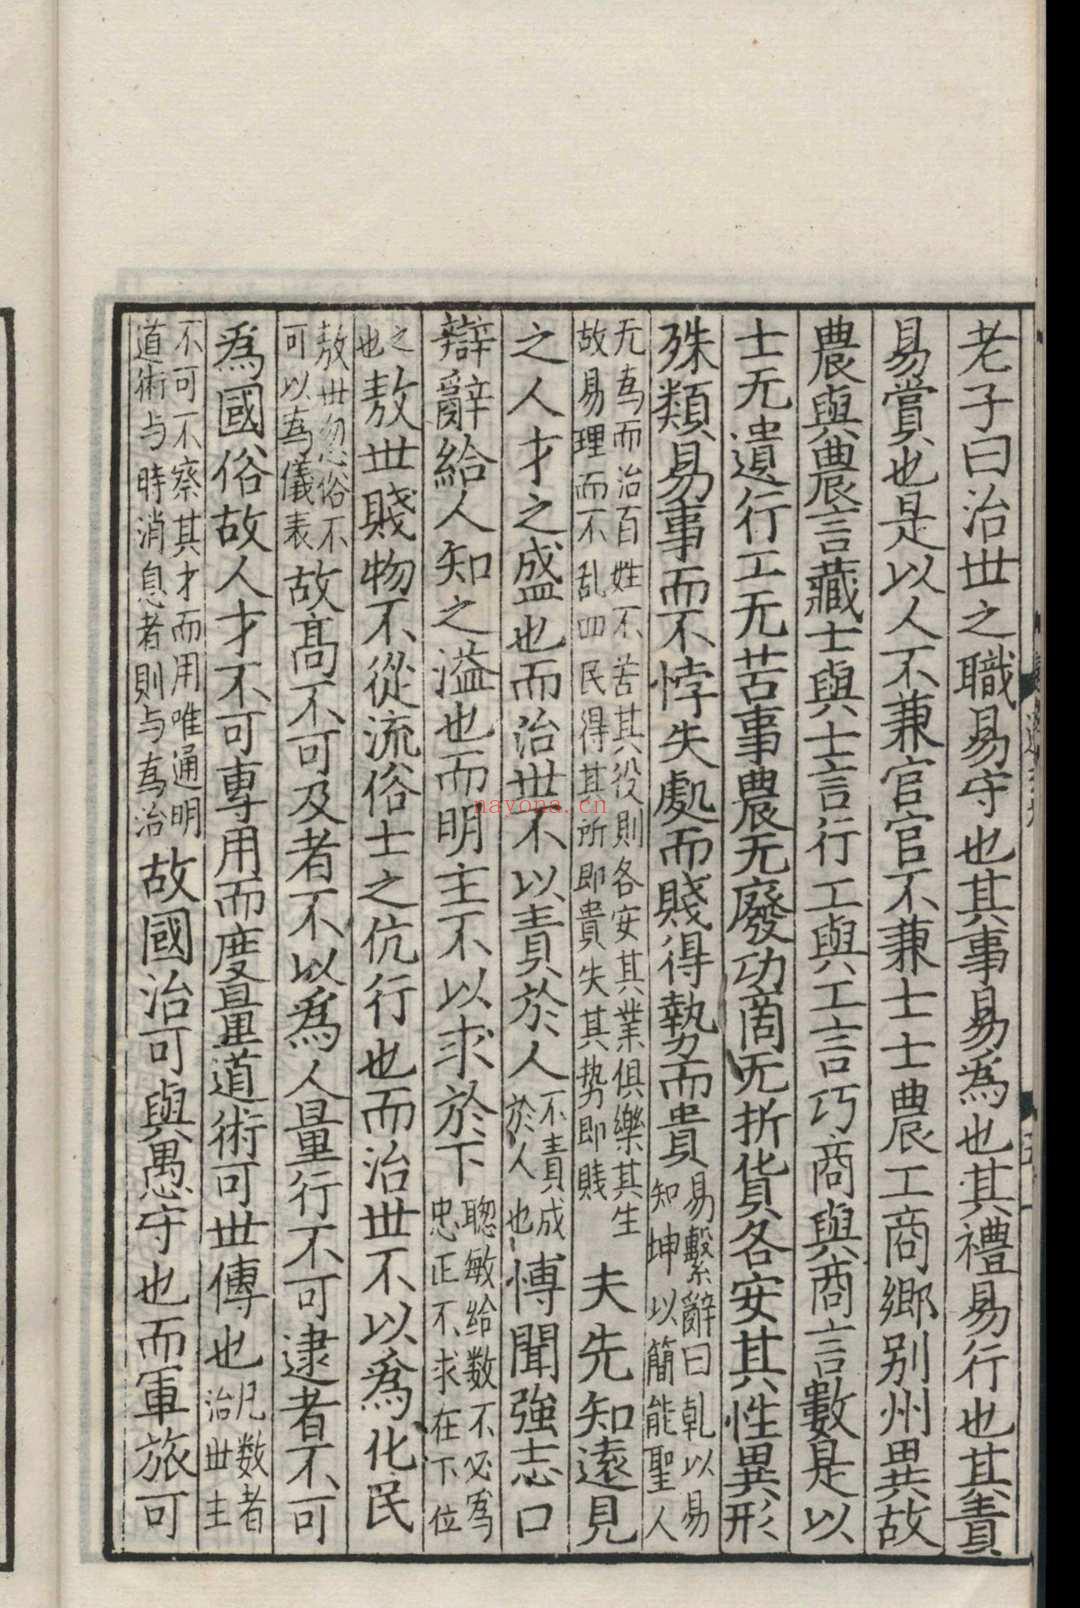 老子曰治丗之職易守也其事易爲也其禮易行也其責
易賞也是以人不兼官官不兼士士農工商鄉别州異故
農與農言藏士與士言行工與工言巧商與商言數是以
士无遺行工无苦事農无廢功商无折貨各安其性異形
殊類易事而不悖失處而賤得勢而貴易繫辭曰乹以易
知坤以簡能聖人
无為而治百姓不苦其役則各安其業俱樂其生
故易理而不乱四民得其所即貴失其势即賤
夫先知遠見
之人才之盛也而治丗不以責於人不責成
於人也
博聞強志口
辯辭給人知之溢也而明主不以求於下聦敏给数不必為
忠正不求在下位
之
也
敖丗賤物不從流俗士之伉行也而治丗不以爲化民
敖丗忽俗不
可以為儀表
故高不可及者不以爲人量行不可逮者不可
爲國俗故人才不可專用而度量道術可丗傳也凡数者
治丗主
不可不察其才而用唯通明
道術与時消息者則与為治
故國治可與愚守也而軍旅可
nayona.cn